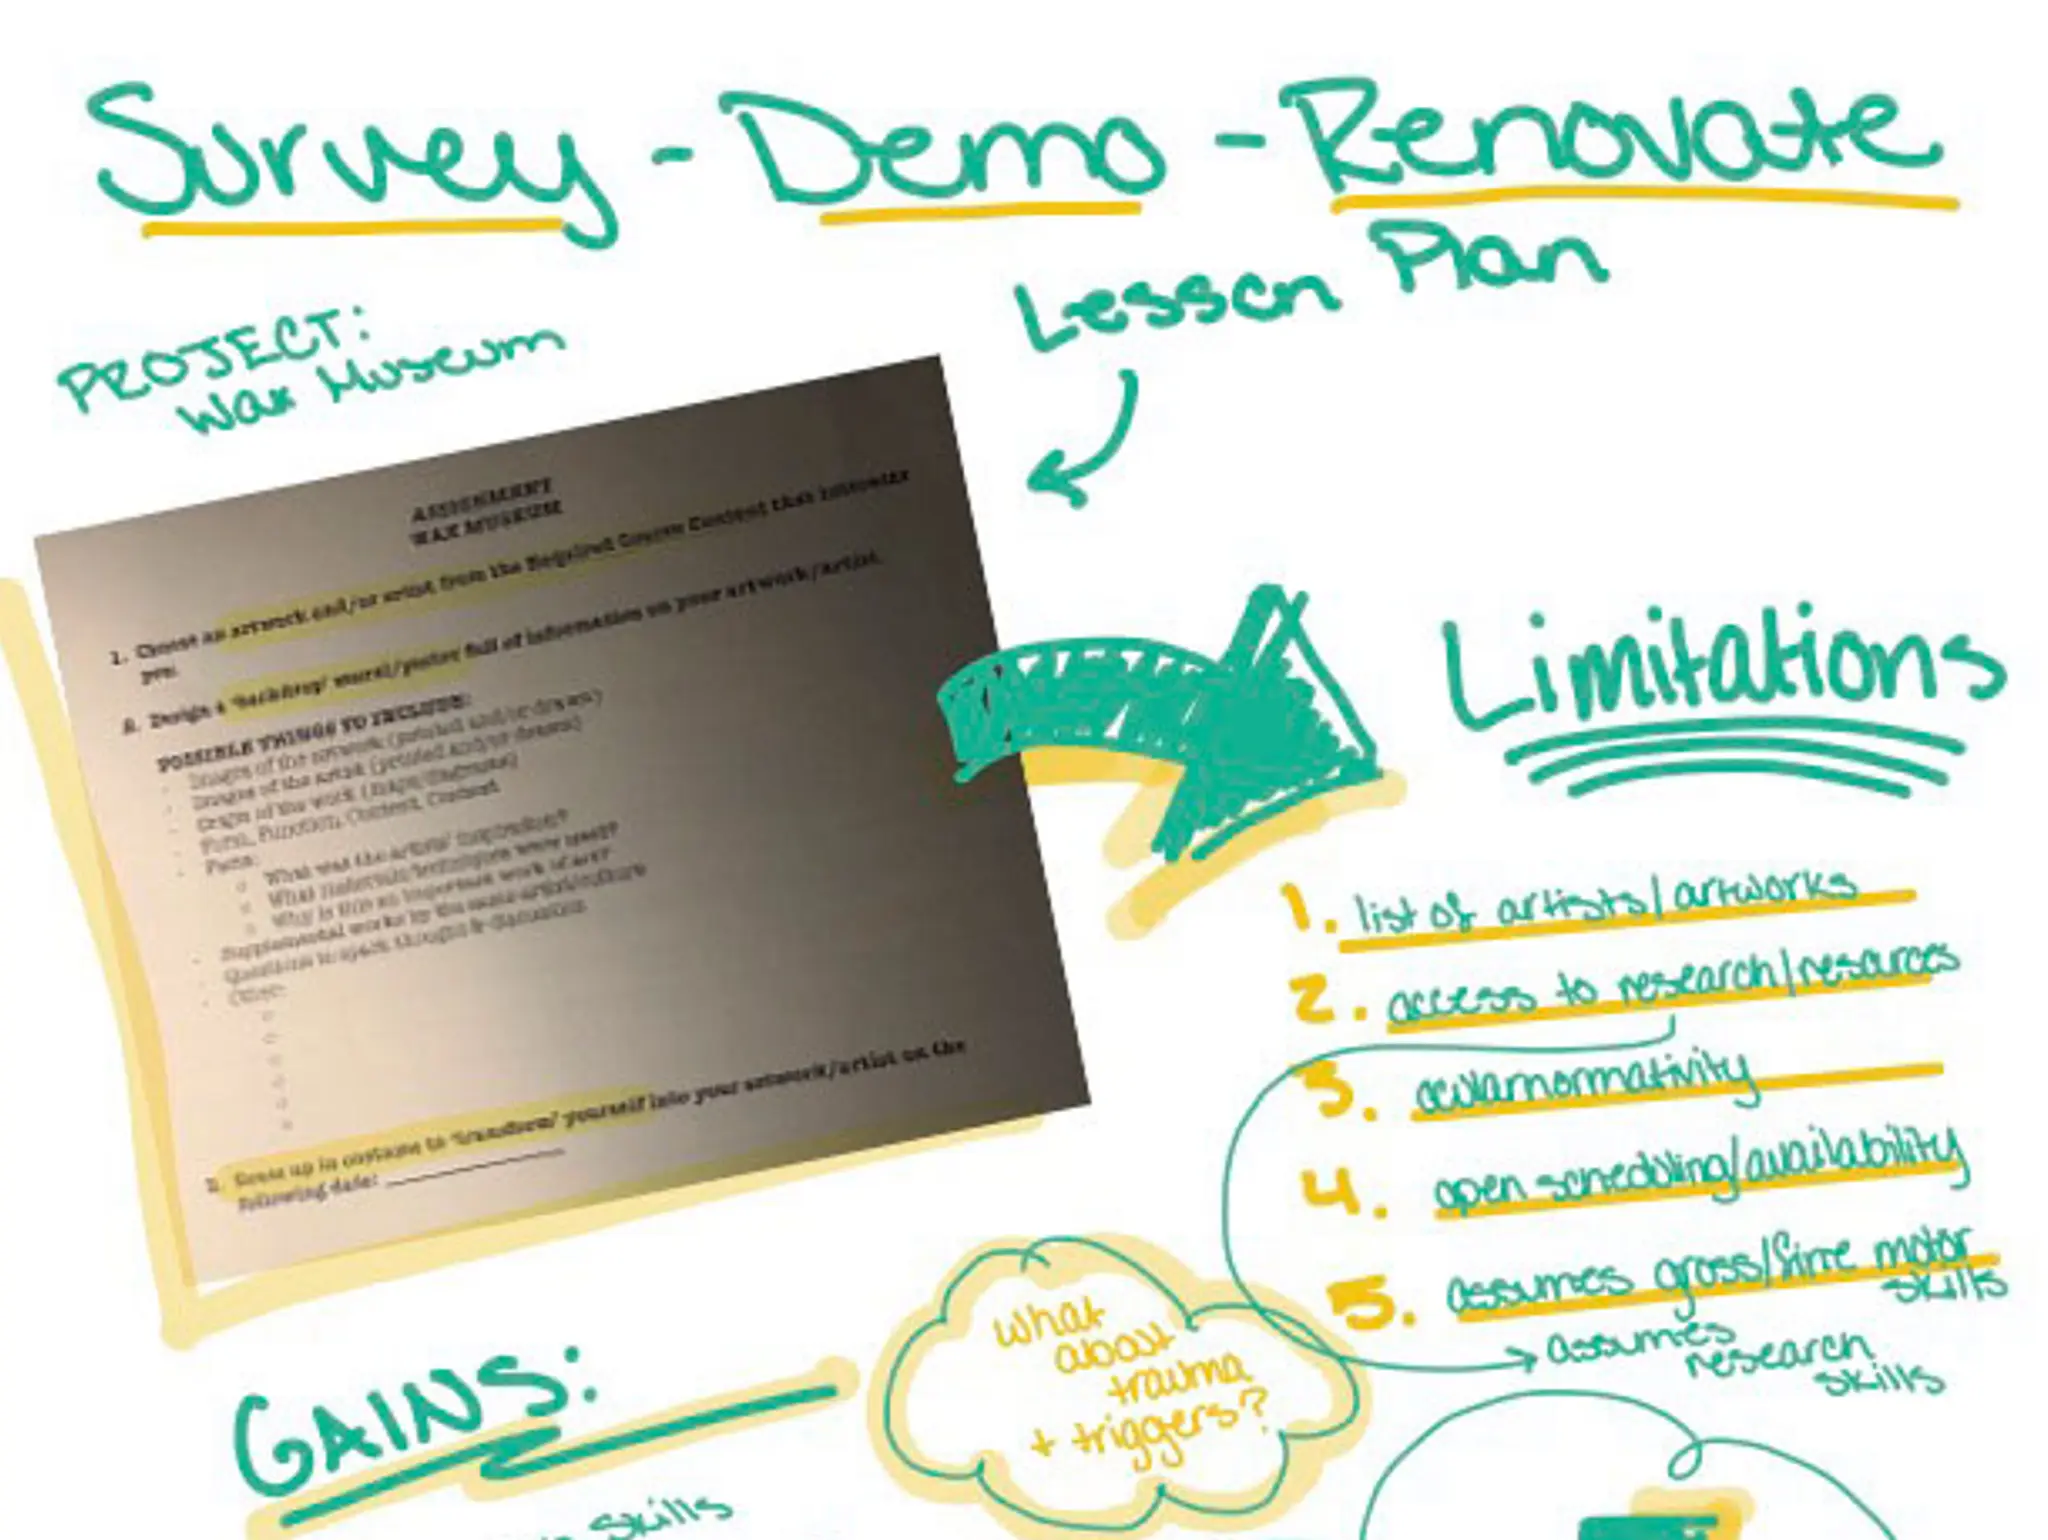 Survey - Demo - Renovate
Lesson Plan
PROJECT:
Wax Museum
ASSIGNMENT
WAX MUSEUM
1. Choose an artwork and/or artist from the Required Course Content that interests
you:
2. Design a 'backdrop' mural/poster full of information on your artwork/artist.
POSSIBLE THINGS TO INCLUDE:
- Images of the artwork (printed and/or drawn)
- Images of the artist (printed and/or drawn)
- Origin of the work (maps/diagrams)
- Form, Function, Content, Context
- Facts:
What was the artists' inspiration?
What materials/techniques were used?
Why is this an important work of art?
- Supplemental works by the same artist/culture
- Questions to spark thought & discussion
- Other:
3. Dress up in costume to 'transform' yourself into your artwork/artist on the
following date:
Limitations
1. list of artists/artworks
2. access to research/resources
3. ocularnormativity
4. open scheduling/availability
5. assumes gross/fine motor
skills
assumes
research
skills
What
about
trauma
+ triggers?
GAINS:
skills